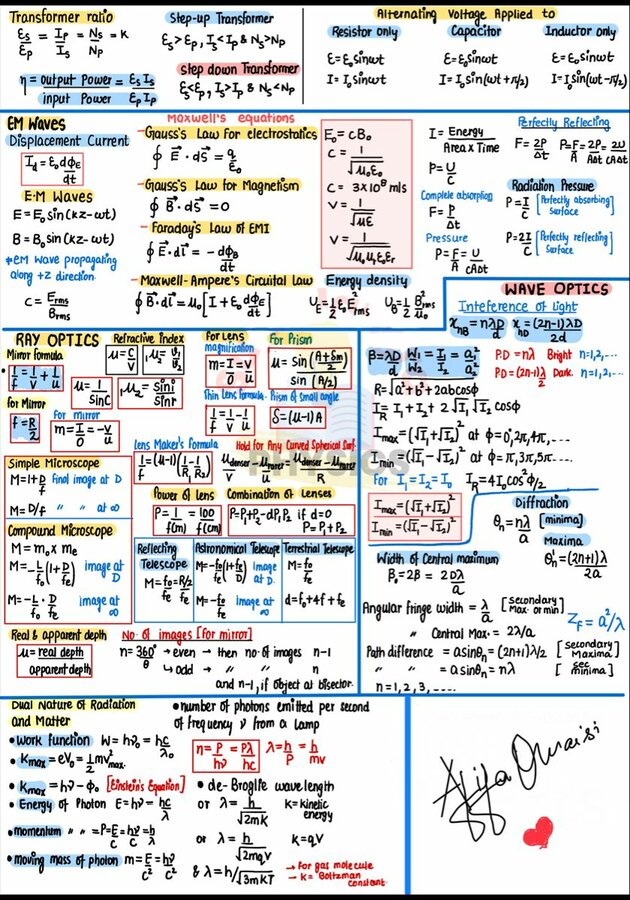 Transformer ratio
εs/εp = Ip/Is = Ns/Np = K
η = output Power/input Power = εs Is/εp Ip
Step-up Transformer
εs > εp, Is < Ip & Ns > Np
Step down Transformer
εs < εp, Is > Ip & Ns < Np
Alternating Voltage Applied to
Resistor only
ε = ε₀sinωt
I = I₀sinωt
Capacitor
ε = ε₀sinωt
I = I₀sin(ωt+π/2)
Inductor only
ε = ε₀sinωt
I = I₀sin(ωt-π/2)
EM Waves
Displacement Current
Id = ε₀ dϕE/dt
E·M Waves
E = E₀ sin(kz-ωt)
B = B₀ sin(kz-ωt)
*EM Wave propagating
along +z direction.
C = Erms/Brms
Maxwell's equations
-Gauss's Law for electrostatics
∮ E⃗·ds⃗ = q/ε₀
-Gauss's Law for Magnetism
∮ B⃗·ds⃗ = 0
- Faraday's Law of EMI
∮ E⃗·dl⃗ = -dϕB/dt
- Maxwell-Ampere's Circuital Law
∮ B⃗·dl⃗ = μ₀[I + ε₀ dϕE/dt]
E₀ = cB₀
C = 1/√μ₀ε₀
C = 3×10⁸ m/s
V = 1/√με
V = 1/√μ₀μrε₀εr
Energy density
UE = 1/2 ε₀E²rms
UB = 1/2 B²rms/μ₀
I = Energy/Area x Time
P = U/C
Complete absorption
F = P/Δt
Pressure
P = F/A = U/cAΔt
Perfectly Reflecting
F = 2P/Δt
P = F/A = 2P/AΔt = 2U/cAΔt
Radiation Pressure
P = I/C [Perfectly absorbing surface]
P = 2I/C [Perfectly reflecting surface]
WAVE OPTICS
Inteference of light
xnB = nλD/d
xnD = (2n-1)λD/2d
β = λD/d
W₁/W₂ = I₁/I₂ = a₁²/a₂²
P.D = nλ Bright n=1,2,...
P.D = (2n-1)λ/2 Dark. n=1,2,...
R = √a²+b²+2abcosϕ
IR = I₁+I₂+2√I₁√I₂ cosϕ
Imax = (√I₁+√I₂)² at ϕ = 0,2π,4π,....
Imin = (√I₁-√I₂)² at ϕ = π,3π,5π....
For I₁ = I₂ = I₀ IR = 4I₀cos²ϕ/2
Imax/Imin = (√I₁+√I₂)²/(√I₁-√I₂)²
Diffraction
θn = nλ/a [minima]
Maxima
θn' = (2n+1)λ/2a
Width of Central maximum
β₀ = 2β = 2Dλ/a
Angular fringe width = λ/a [Secondary Max. or min]
" Central Max. = 2λ/a
ZF = a²/λ
Path difference = asinθn = (2n+1)λ/2 [Secondary Maxima]
" = asinθn = nλ [Sec minima]
n = 1, 2, 3, ....
RAY OPTICS
Mirror formula
1/f = 1/v + 1/u
for Mirror
f = R/2
for mirror
m = I/O = -v/u
Refractive Index
μ = C/V
¹μ₂ = V₁/V₂
μ = 1/sinC
¹μ₂ = sini/sinr
For Lens
magnification
m = I/O = v/u
Thin Lens formula
1/f = 1/v - 1/u
For Prism
μ = sin(A+δm/2)/sin(A/2)
Prism of Small angle
δ = (μ-1)A
Lens Maker's Formula
1/f = (μ-1)(1/R₁ - 1/R₂)
Hold for Any Curved Spherical Surf.
μdenser/V - μrarer/u = μdenser-μrarer/R
Power of Lens
P = 1/f(m) = 100/f(cm)
Combination of Lenses
P = P₁+P₂-dP₁P₂ if d=0
P = P₁+P₂
PHYSICS
Simple Microscope
M = 1+D/f final image at D
M = D/f " " at ∞
Compound Microscope
M = m₀ × me
M = -L/f₀(1+D/fe) image at D
M = -L/f₀·D/fe image at ∞
Reflecting Telescope
M = f₀/fe = R/2/fe
Astronomical Telescope
M = -f₀/fe(1+fe/D) Image at D.
M = -f₀/fe image at ∞
Terrestrial Telescope
M = f₀/fe
d = f₀+4f+fe
Real & apparent depth
μ = real depth/apparent depth
No. of images [for mirror]
n = 360°/θ → even - then no. of images n-1
↳ odd - " " n
and n-1, if object at bisector.
Dual Nature of Radiation
and Matter
• Work function W = hν₀ = hc/λ₀
• Kmax = eV₀ = 1/2 mv²max.
• Kmax = hν-ϕ₀ [Einstein's Equation]
• Energy of Photon E = hν = hc/λ
• momentum " " = P = E/C = hν/C = h/λ
• moving mass of photon m = E/C² = hν/C²
• number of photons emitted per second
of frequency ν from a Lamp
n = P/hν = Pλ/hc
λ = h/P = h/mv
• de-Broglie wavelength
or λ = h/√2mK K = kinetic energy
or λ = h/√2mqV K = qV
& λ = h/√3mKT → for gas molecule
→ K = Boltzman constant.